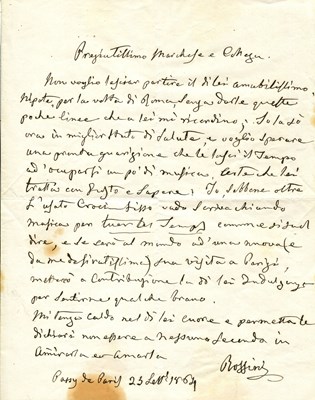 Pregiatissimo Marchese e Collega
Non voglio lasciar partire il di lei amabilissimo
Nipote, per la volta di Roma, senza darle queste
poche linee che a lei mi ricordino; So la so
ora in miglior stato di salute, e voglio sperare
una pronta guarigione che le lasci il tempo
ad occuparsi un po' di musica, arte che lei
tratta con gusto e sapere; Io, sebbene oltre
l'usato Crocifisso vado scrivacchiando
musica per tuer les Temps come suol
dire, e se sarà al mondo ad una nuova (e
da me desiratissima) sua visita a Parigi,
metterò a contribuzione la di lei Indulgenza
per sentirne qualche brano.
Mi tenga caldo nel di lei cuore e permetta le
dichiari non essere a nessuno secondo in
Amirarla ed Amarla
Rossini
Passy de Paris 23 Sett. 1864